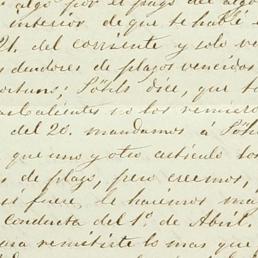 algo por el pago del algo
interior de que te hablé e
21. del corriente y solo ve
deudores de plazos vencidos
ortuns; Pöhls dice, que t
calientes no los remiero
del 20. mandamos á Pöh
que uno y otro artículo los
s de plazo, pero creemos,
si fuere, le hacemos ma
Conducta del 1º de Abril.
para remitirte lo mas que